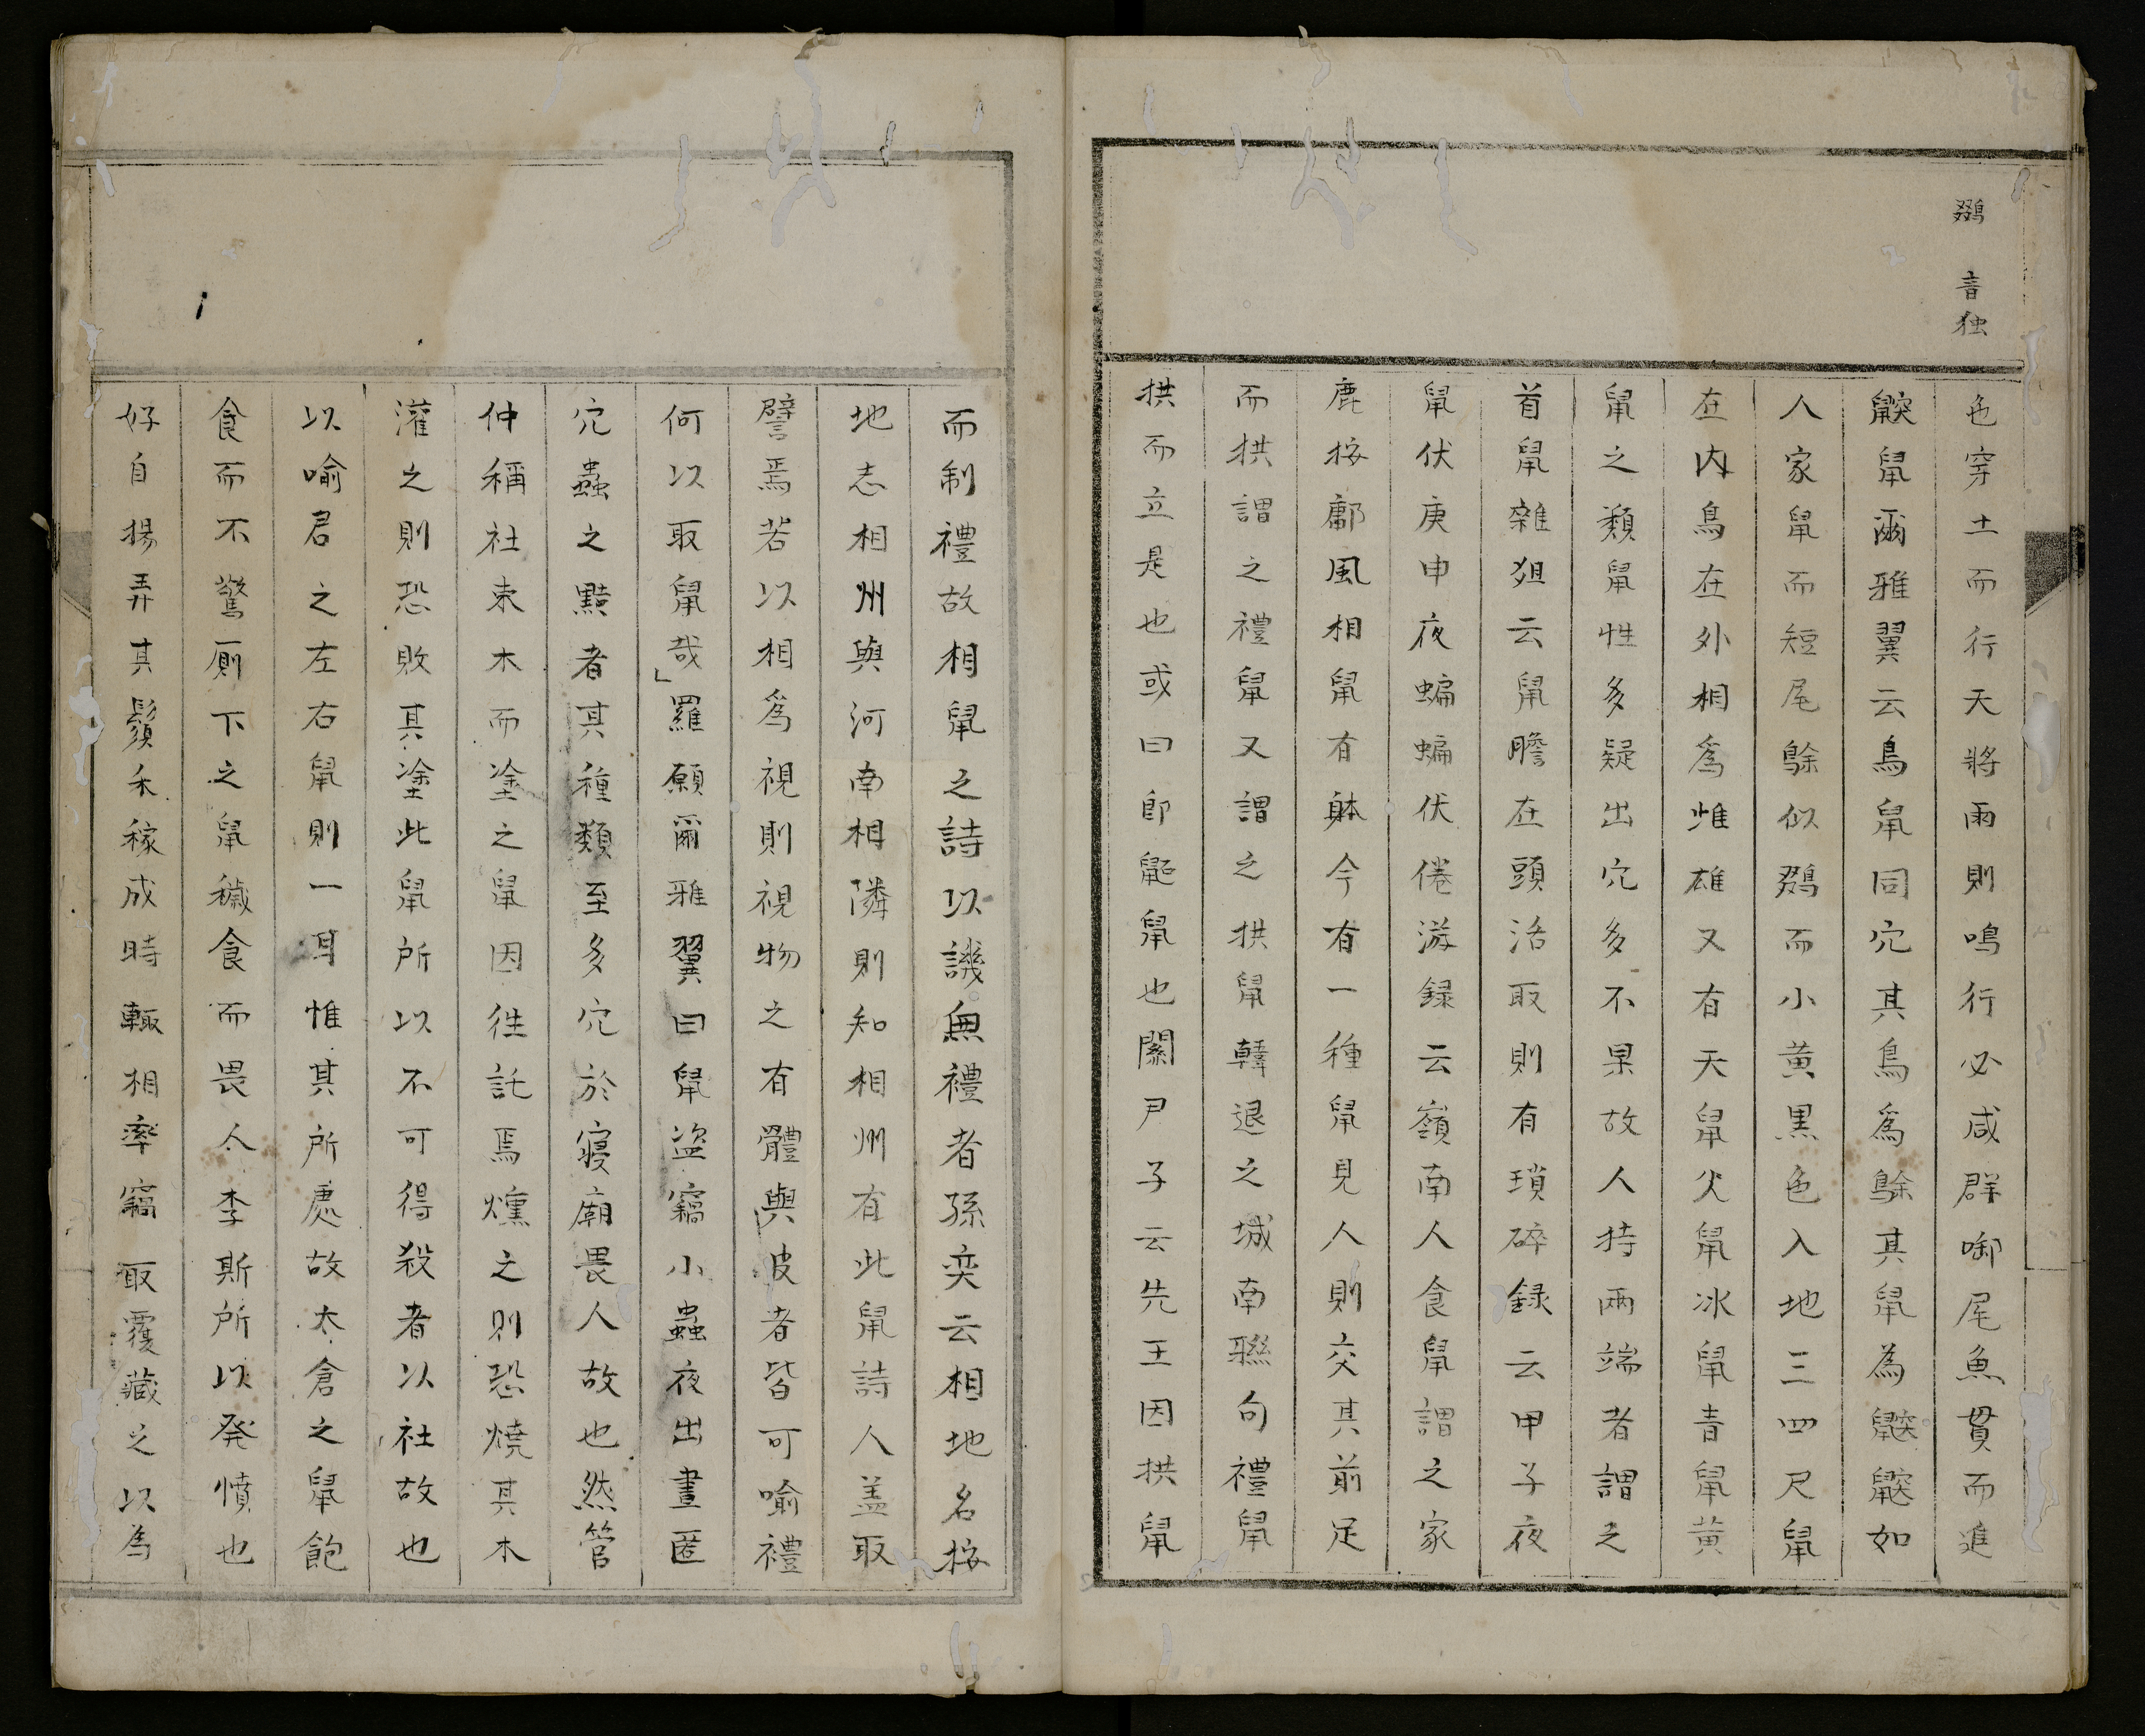 鵽 音独
色穿土而行天將雨則鳴行必咸群啣尾魚貫而進
鼵鼠爾雅翼云鳥鼠同穴其鳥爲鵌其鼠為鼵鼵如
人家鼠而短尾鵌似鵽而小黄黒色入地三四尺鼠
在内鳥在外相爲雌雄又有天鼠火鼠冰鼠青鼠黄
鼠之類鼠性多疑出穴多不果故人持兩端者謂之
首鼠雜俎云鼠膽在頭活取則有瑣碎録云甲子夜
鼠伏庚申夜蝙蝙伏倦游録云嶺南人食鼠謂之家
鹿按鄘風相鼠有躰今有一種鼠見人則交其前足
而拱謂之禮鼠又謂之拱鼠韓退之城南聯句禮鼠
拱而立是也或曰卽鼫鼠也關尹子云先王因拱鼠
而制禮故相鼠之詩以譏無禮者孫奕云相地名按
地志相州與河南相隣則知相州有此鼠詩人盖取
譬焉若以相爲視則視物之有體與皮者皆可喻禮
何以取鼠哉」羅願爾雅翼曰鼠盗竊小蟲夜出晝匿
穴蟲之黠者其種類至多穴於寢廟畏人故也然管
仲稱社束木而塗之鼠因徃託焉燻之則恐燒其木
灌之則恐敗其塗此鼠所以不可得殺者以社故也
以喻君之左右鼠則一耳惟其所處故太倉之鼠飽
食而不驚厠下之鼠穢食而畏人李斯所以発憤也
好自揚弄其鬚禾稼成時輙相率竊取覆藏之以為